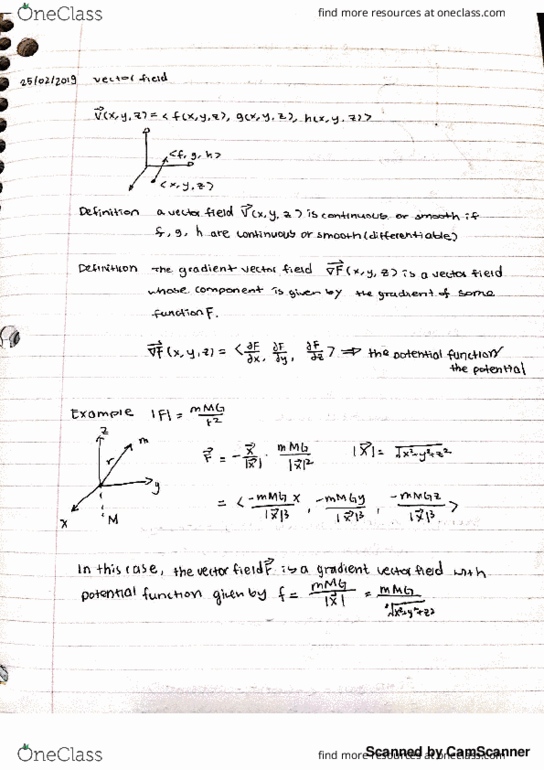 OneClass
find more resources at oneclass.com
25/02/2019 vector field
V⃗(x,y,z) = <f(x,y,z), g(x,y,z), h(x,y,z)>
<f, g, h>
<x,y,z>
Definition a vector field V⃗(x,y,z) is continuous or smooth if
f, g, h are continuous or smooth (differentiable)
Definition The gradient vector field ∇F⃗(x,y,z) is a vector field
whose component is given by the gradient of some
function F.
∇F⃗(x,y,z) = <∂F/∂x, ∂F/∂y, ∂F/∂z> ⇒ the potential function/
the potential
Example |F| = mMG/r²
z m
r
y
x M
F⃗ = -x⃗/|x⃗| · mMG/|x⃗|² |x⃗| = √x²+y²+z²
= <-mMGx/|x⃗|³, -mMGy/|x⃗|³, -mMGz/|x⃗|³>
In this case, the vector field F⃗ is a gradient vector field with
potential function given by f = mMG/|x⃗| = mMG/√x²+y²+z²
Scanned by CamScanner
OneClass
find more resources at oneclass.com